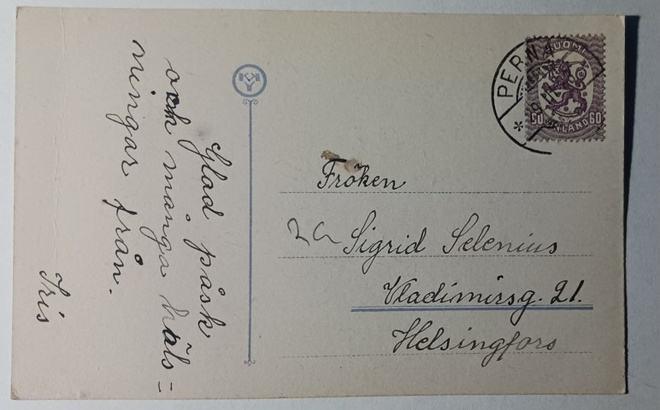 Glad påsk
och många häls=
ningar från.
Iris
Fröken
Sigrid Selenius
Vladimirsg. 21.
Helsingfors
SUOMI
60 FINLAND 60
PERNÅ